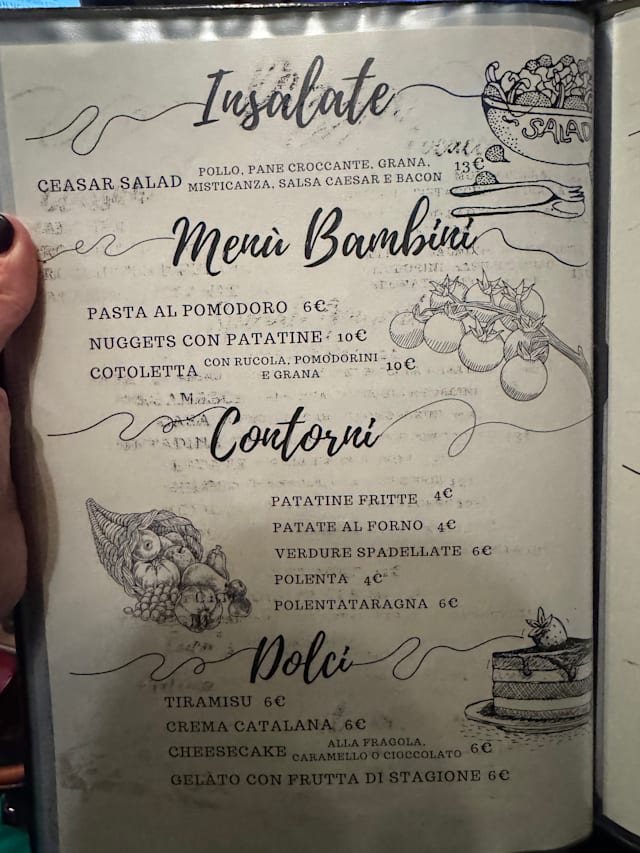 Insalate
SALAD
CEASAR SALAD POLLO, PANE CROCCANTE, GRANA, MISTICANZA, SALSA CAESAR E BACON 13€
Menù Bambini
PASTA AL POMODORO 6€
NUGGETS CON PATATINE 10€
COTOLETTA CON RUCOLA, POMODORINI E GRANA 10€
Contorni
PATATINE FRITTE 4€
PATATE AL FORNO 4€
VERDURE SPADELLATE 6€
POLENTA 4€
POLENTATARAGNA 6€
Dolci
TIRAMISU 6€
CREMA CATALANA 6€
CHEESECAKE ALLA FRAGOLA, CARAMELLO O CIOCCOLATO 6€
GELATO CON FRUTTA DI STAGIONE 6€